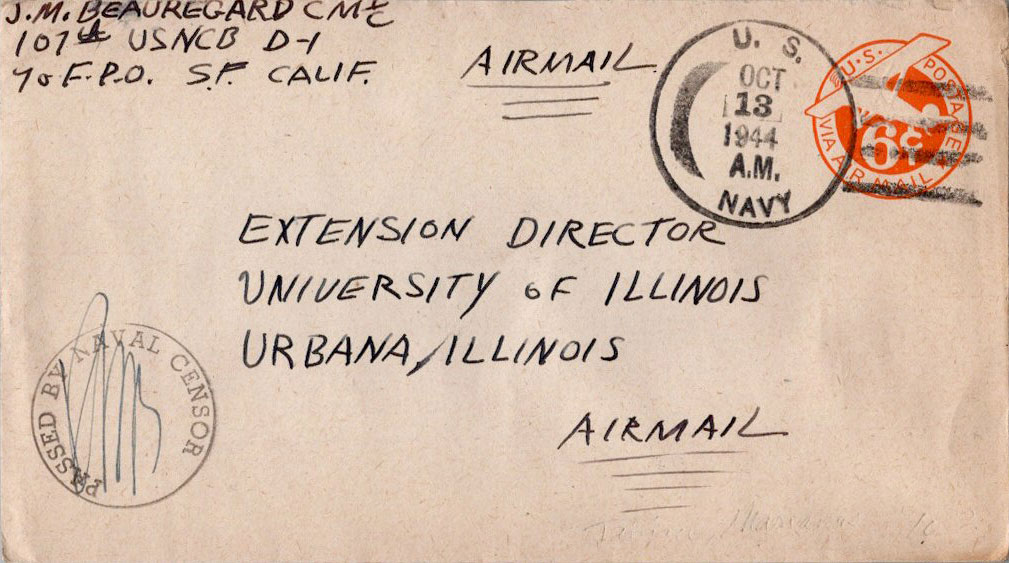 J.M. BEAUREGARD CMC
107th USNCB D-1
% F.P.O. S.F. CALIF.
AIRMAIL
U. S.
OCT
13
1944
A.M.
NAVY
U.S. POSTAGE
6¢
VIA AIR MAIL
EXTENSION DIRECTOR
UNIVERSITY OF ILLINOIS
URBANA, ILLINOIS
PASSED BY NAVAL CENSOR
AIRMAIL